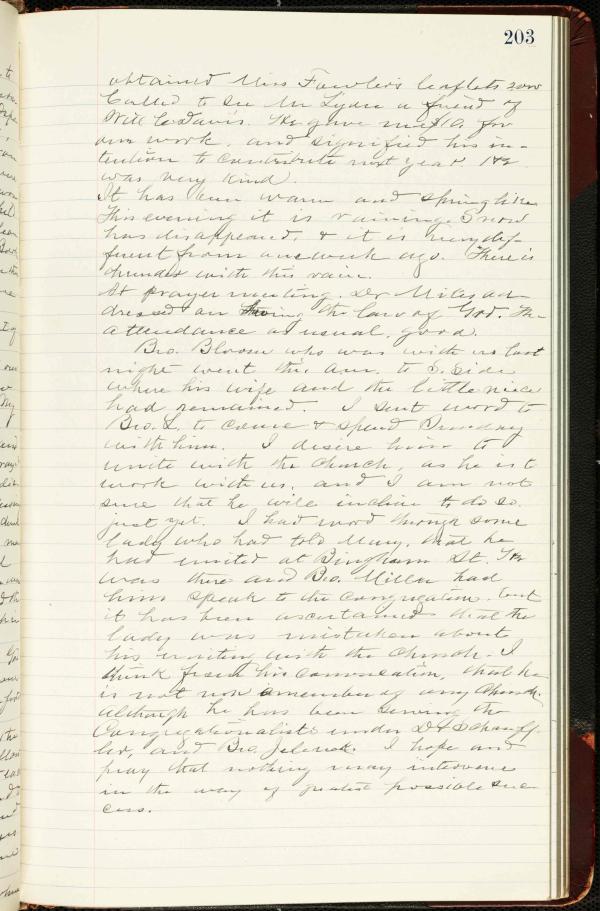 203
obtained Miss Fowler's leaflets now
Called to see Mr Lydin a friend of
Will C. Davis. He gave me for
our work, and signified his in-
tention to contribute next year. He
was very kind.
It has been warm and springlike
This evening it is raining. Snow
has disappeared, & it is very dif-
ferent from one week ago. There is
thunder with this rain.
At prayer meeting, Dr Miles ad-
dressed on the law of God. The
attendance as usual, good.
Bro. Bloom who was with us last
night went this a.m. to S. Side
where his wife and the little niece
had remained. I sent word to
Bro. to come & spend Sunday
with him. I desire him to
unite with the church, as he is to
work with us, and I am not
sure that he will incline to do so
just yet. I had word through some
lady who had told Mary, that he
had united at Bingham St. He
was there and Bro. Miller had
him speak to the congregation, but
it has been ascertained that the
lady was mistaken about
his uniting with the church. I
think from his conversation, that he
is not now a member of any church,
although he has been serving the
Congregationalists under Dr Schauff-
ler, and Bro. Jelinek. I hope and
pray that nothing may intervene
in the way of greatest possible suc-
cess.